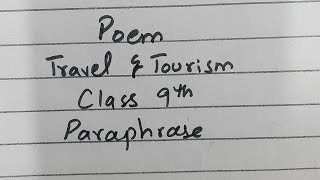 Poem
Travel & Tourism
Class 9th
Paraphrase